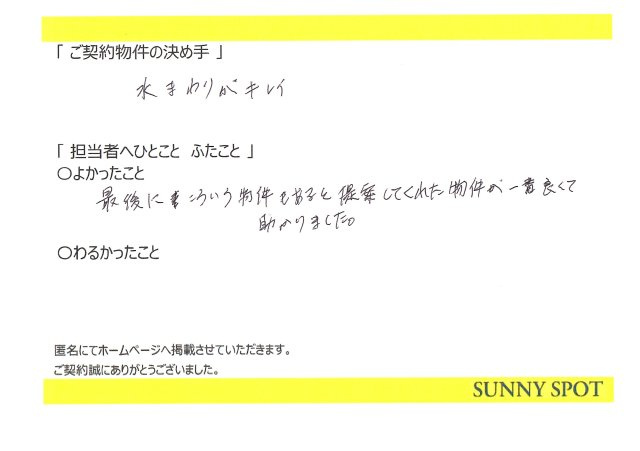 「 ご契約物件の決め手 」
水まわりがキレイ
「 担当者へひとこと ふたこと 」
○よかったこと
最後に こういう物件もあると提案してくれた物件が一番良くて
助かりました。
○わるかったこと
匿名にてホームページへ掲載させていただきます。
ご契約誠にありがとうございました。
SUNNY SPOT